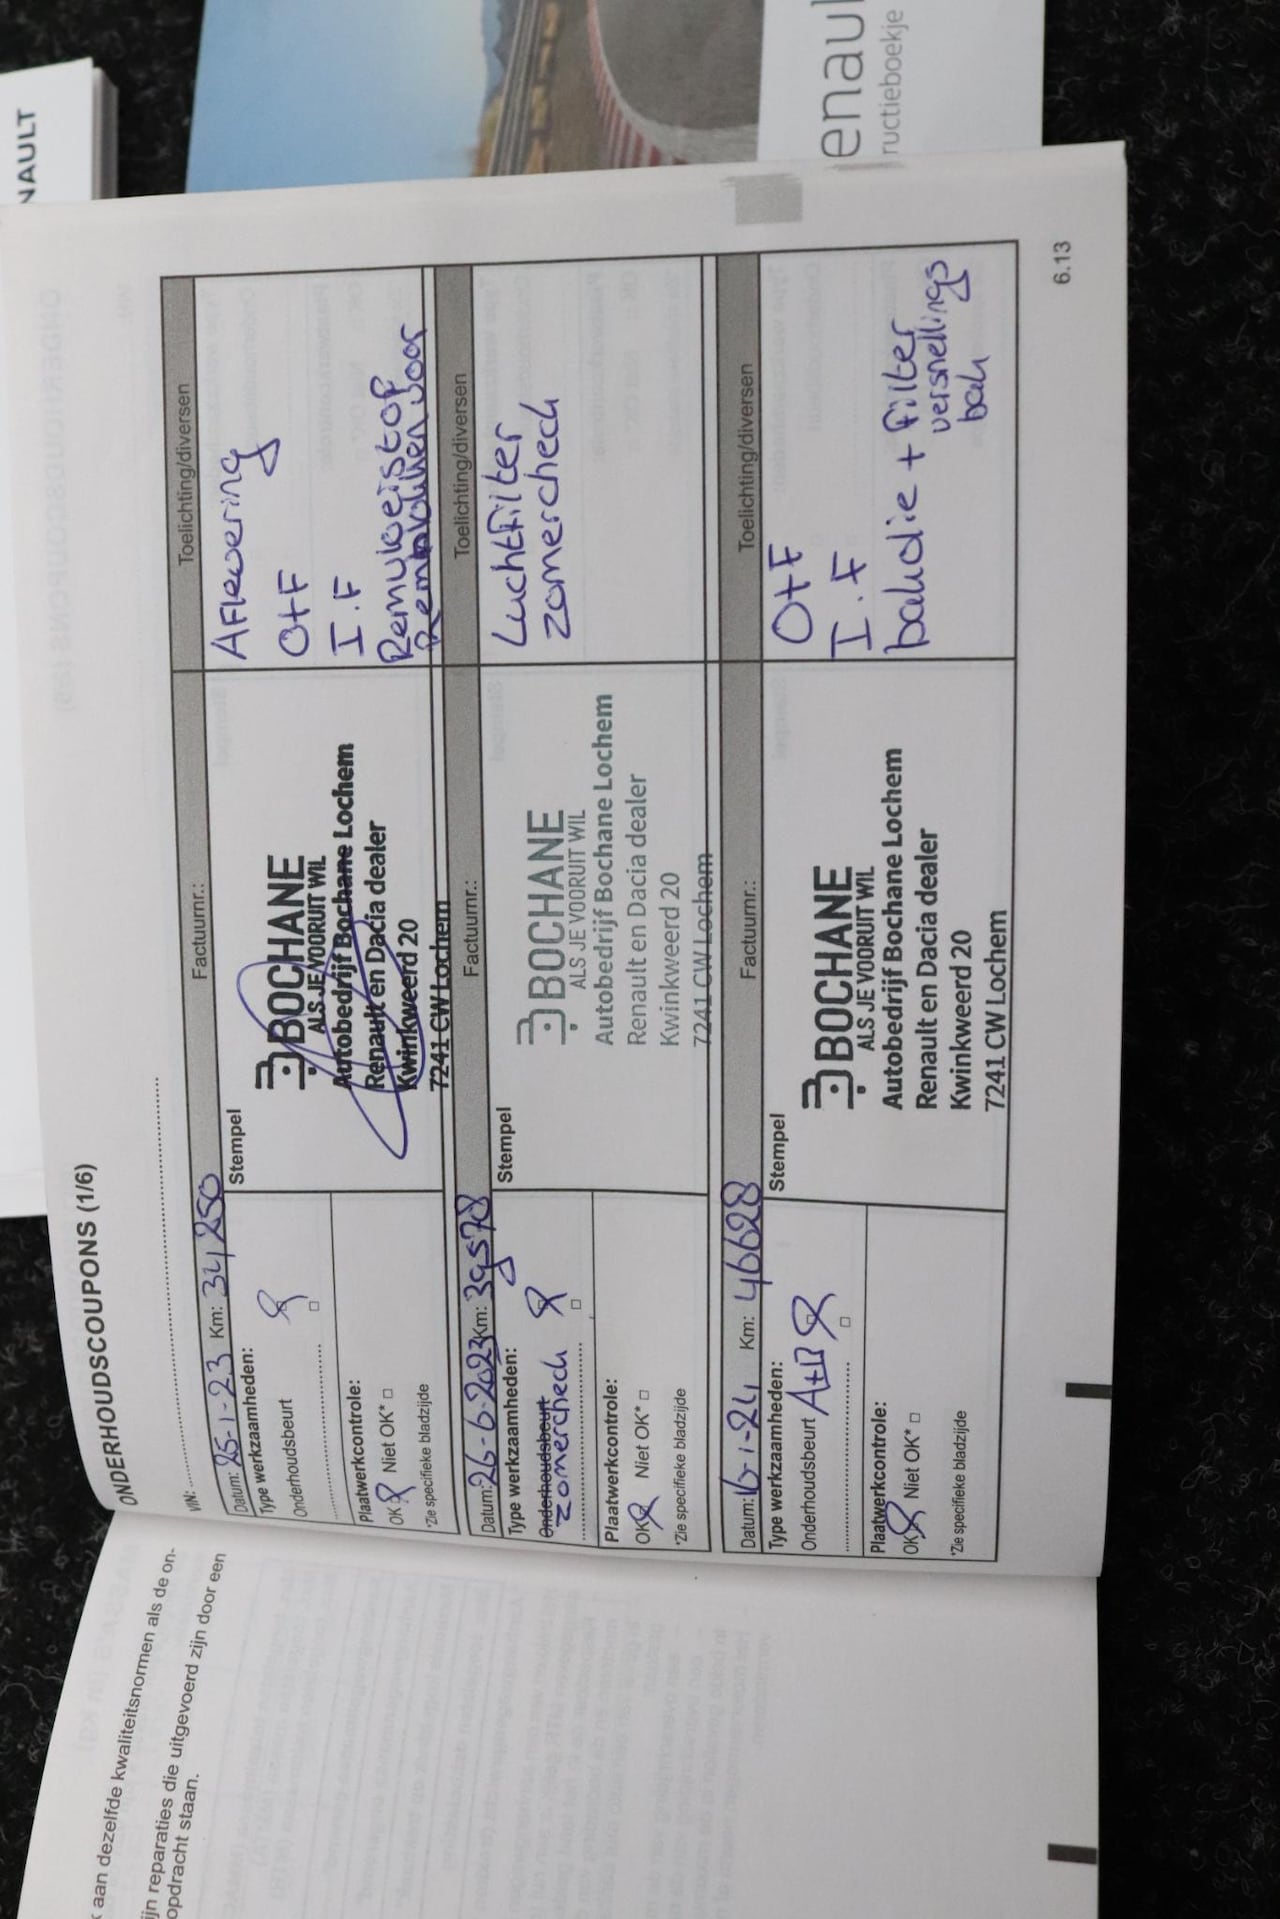 NAULT
enaul
ructieboekje
ONDERHOUDSCOUPONS (1/6)
VIN:
Datum: 25-1-23 Km: 34250 Factuurnr.: Toelichting/diversen
Type werkzaamheden:
Onderhoudsbeurt
Plaatwerkcontrole:
OK Niet OK*
*Zie specifieke bladzijde
Stempel
BOCHANE
ALS JE VOORUIT WIL
Autobedrijf Bochane Lochem
Renault en Dacia dealer
Kwinkweerd 20
7241 CW Lochem
Aflevering
O+F
I.F
Remvloeistof
Remblokken voor
Datum: 26-6-2023 Km: 39578 Factuurnr.: Toelichting/diversen
Type werkzaamheden:
Onderhoudsbeurt
zomercheck
Plaatwerkcontrole:
OK Niet OK*
*Zie specifieke bladzijde
Stempel
BOCHANE
ALS JE VOORUIT WIL
Autobedrijf Bochane Lochem
Renault en Dacia dealer
Kwinkweerd 20
7241 CW Lochem
Luchtfilter
zomercheck
Datum: 16-1-24 Km: 46628 Factuurnr.: Toelichting/diversen
Type werkzaamheden:
Onderhoudsbeurt A+B
Plaatwerkcontrole:
OK Niet OK*
*Zie specifieke bladzijde
Stempel
BOCHANE
ALS JE VOORUIT WIL
Autobedrijf Bochane Lochem
Renault en Dacia dealer
Kwinkweerd 20
7241 CW Lochem
O+F
I.F
bakolie + filter
versnellings
bak
6.13
aan dezelfde kwaliteitsnormen als de on-
ijn reparaties die uitgevoerd zijn door een
opdracht staan.